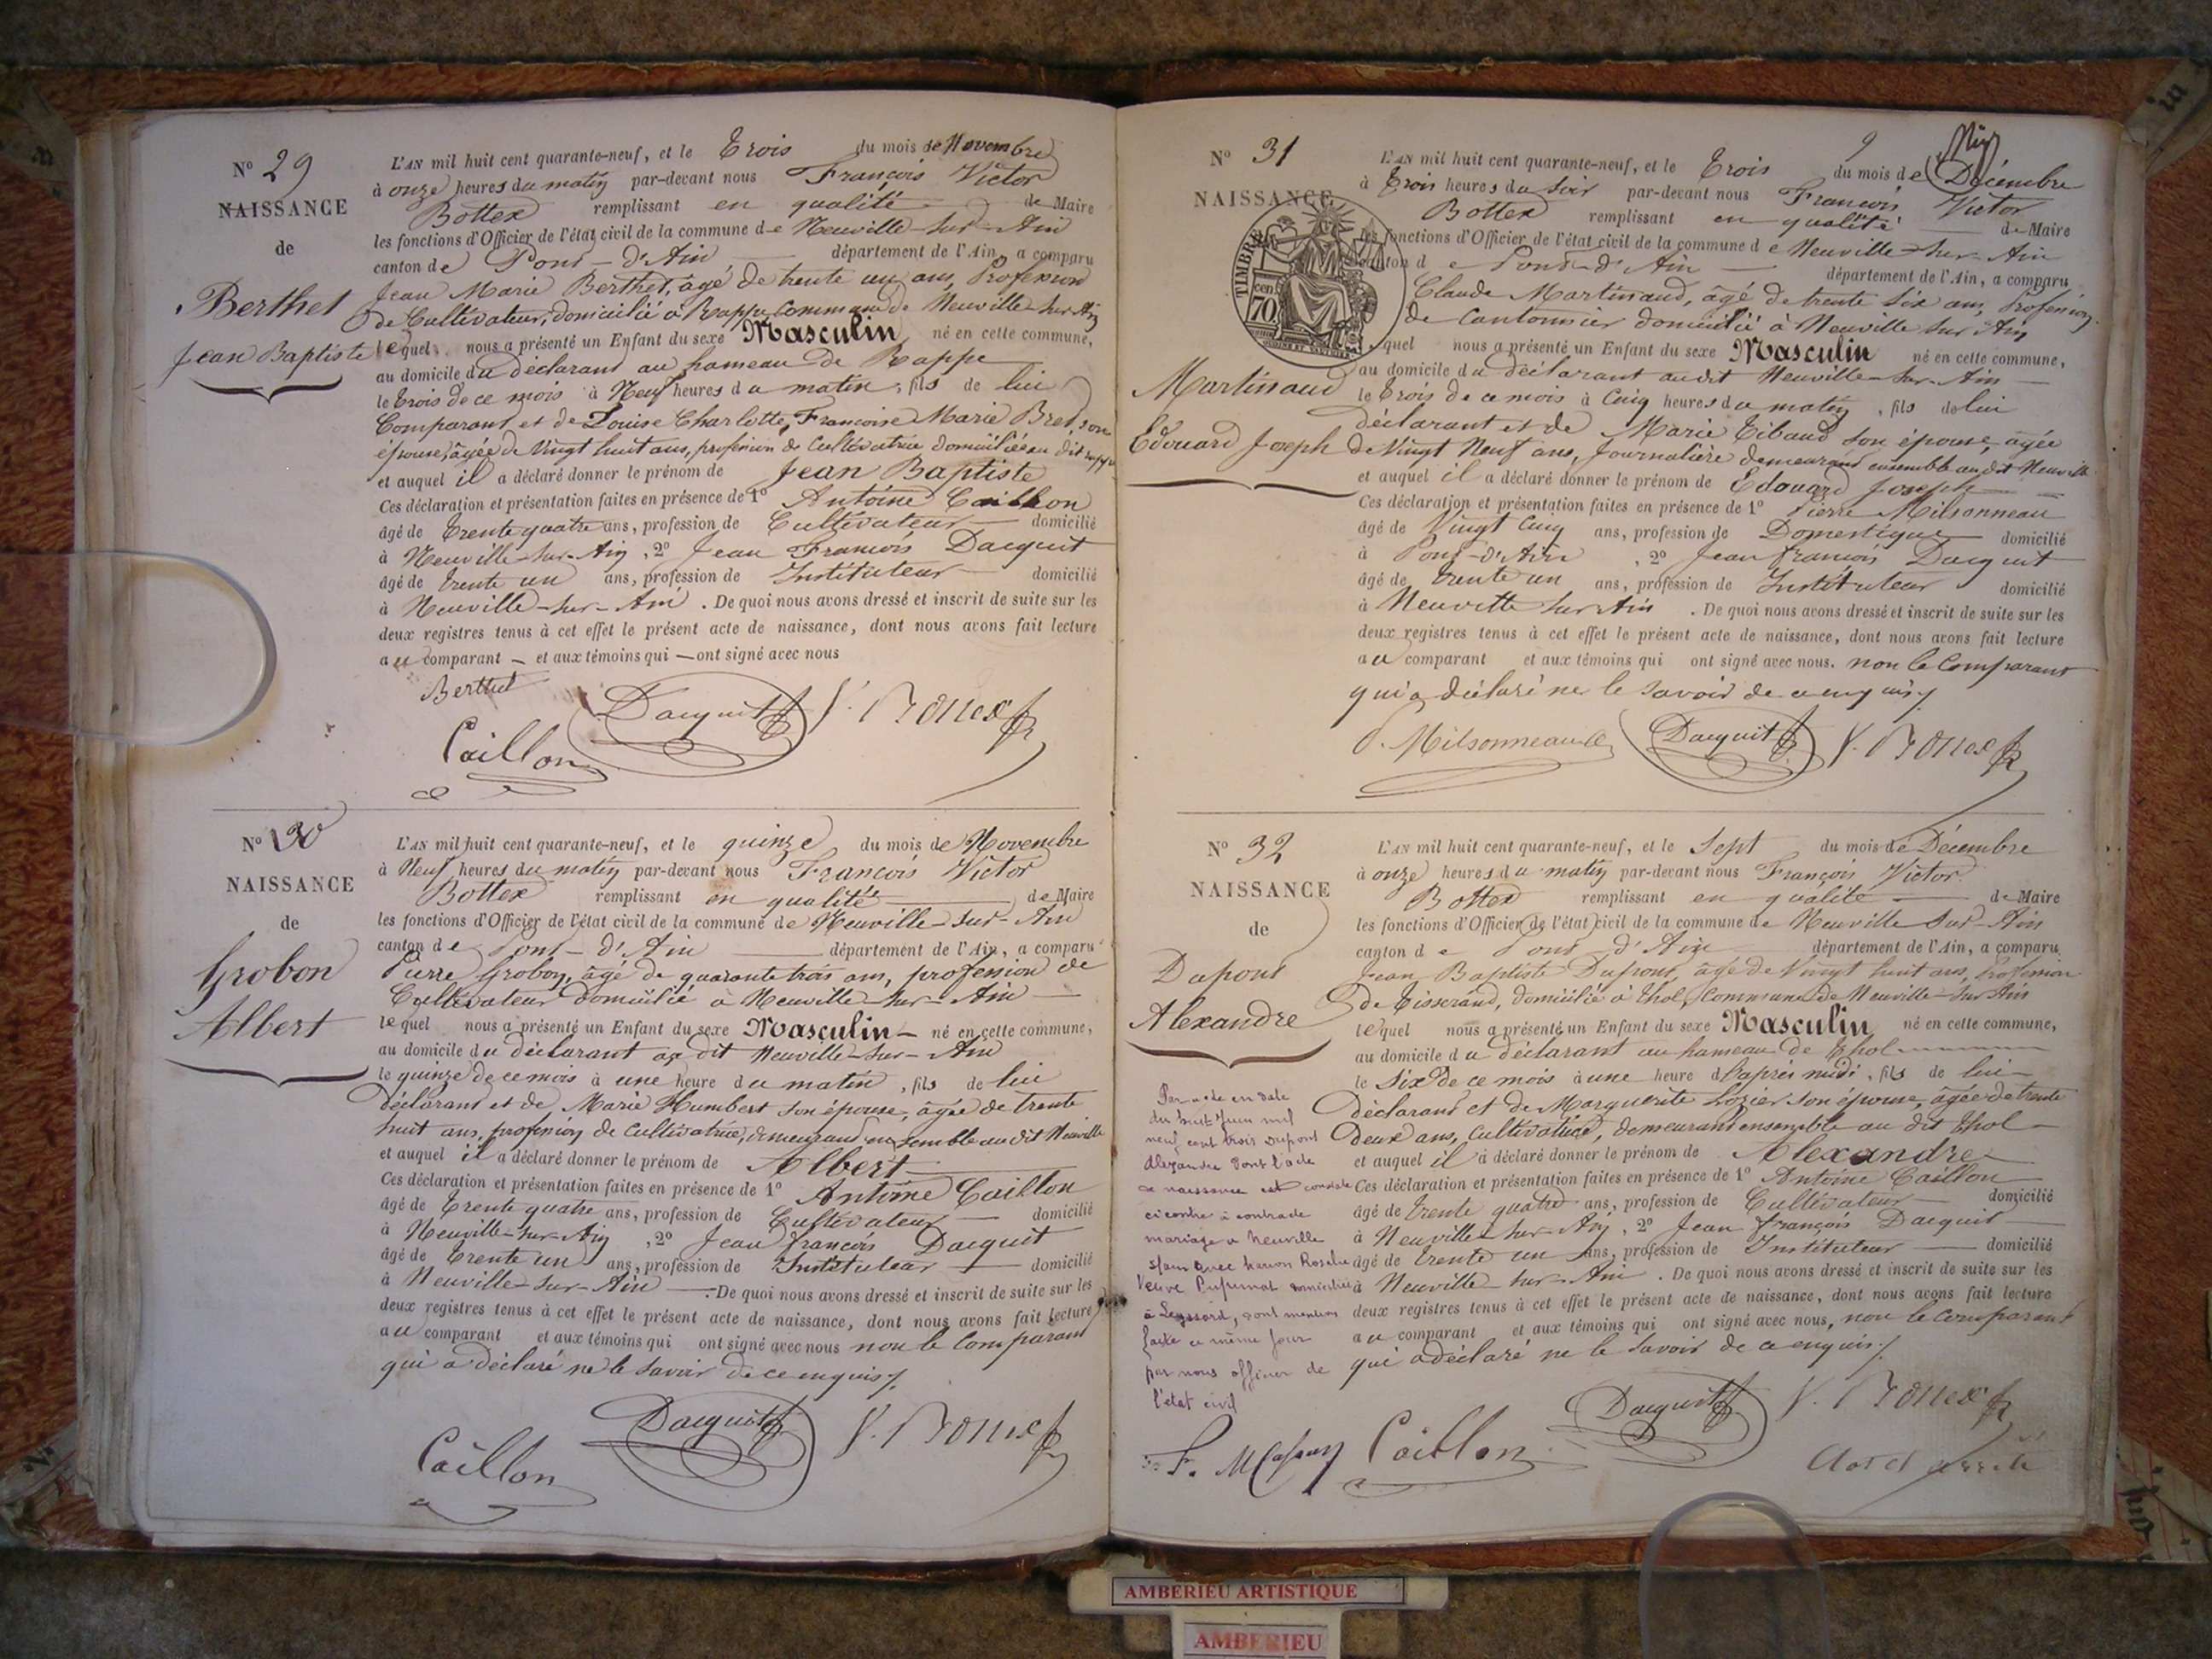 N° 29
NAISSANCE
de
Berthet
Jean Baptiste
L'AN mil huit cent quarante-neuf, et le Trois du mois de Novembre
à onze heures du matin par-devant nous François Victor
Bottex remplissant en qualité de Maire
les fonctions d'Officier de l'état civil de la commune de Neuville-sur-Ain
canton de Pont-d'Ain département de l'Ain, a comparu
Jean Marie Berthet, âgé de trente un ans, Profession
de Cultivateur, domicilié à Rappe, commune de Neuville sur Ain
lequel nous a présenté un Enfant du sexe Masculin né en cette commune,
au domicile du déclarant au hameau de Rappe
le trois de ce mois à Neuf heures du matin, fils de lui
Comparant et de Louise Charlotte, Françoise Marie Bret, son
épouse, âgée de Vingt huit ans, profession de Cultivatrice domiciliée au dit
et auquel il a déclaré donner le prénom de Jean Baptiste
Ces déclaration et présentation faites en présence de 1° Antoine Caillon
âgé de Trente quatre ans, profession de Cultivateur domicilié
à Neuville-sur-Ain, 2° Jean François Dacquit
âgé de trente un ans, profession de Instituteur domicilié
à Neuville-sur-Ain. De quoi nous avons dressé et inscrit de suite sur les
deux registres tenus à cet effet le présent acte de naissance, dont nous avons fait lecture
au comparant et aux témoins qui ont signé avec nous
Berthet
Dacquit V. Bottex
Caillon
N° 30
NAISSANCE
de
Grobon
Albert
L'AN mil huit cent quarante-neuf, et le quinze du mois de Novembre
à Neuf heures du matin par-devant nous François Victor
Bottex remplissant en qualité de Maire
les fonctions d'Officier de l'état civil de la commune de Neuville-sur-Ain
canton de Pont-d'Ain département de l'Ain, a comparu
Pierre Grobon, âgé de quarante trois ans, profession de
Cultivateur domicilié à Neuville-sur-Ain
lequel nous a présenté un Enfant du sexe Masculin né en cette commune,
au domicile du déclarant au dit Neuville-sur-Ain
le quinze de ce mois à une heure du matin, fils de lui
déclarant et de Marie Humbert son épouse, âgée de trente
huit ans, profession de Cultivatrice, demeurant ensemble au dit Neuville
et auquel il a déclaré donner le prénom de Albert
Ces déclaration et présentation faites en présence de 1° Antoine Caillon
âgé de Trente quatre ans, profession de Cultivateur domicilié
à Neuville-sur-Ain, 2° Jean françois Dacquit
âgé de trente un ans, profession de Instituteur domicilié
à Neuville-sur-Ain. De quoi nous avons dressé et inscrit de suite sur les
deux registres tenus à cet effet le présent acte de naissance, dont nous avons fait lecture
au comparant et aux témoins qui ont signé avec nous non le Comparant
qui a déclaré ne le savoir de ce enquis
Dacquit V. Bottex
Caillon
9
N° 31
NAISSANCE
TIMBRE
cen 70
Martinaud
Edouard Joseph
L'AN mil huit cent quarante-neuf, et le Trois du mois de Décembre
à Trois heures du Soir par-devant nous François Victor
Bottex remplissant en qualité de Maire
les fonctions d'Officier de l'état civil de la commune de Neuville-sur-Ain
canton de Pont-d'Ain département de l'Ain, a comparu
Claude Martinaud, âgé de trente six ans, Profession
de cantonnier domicilié à Neuville sur Ain
lequel nous a présenté un Enfant du sexe Masculin né en cette commune,
au domicile du déclarant audit Neuville-sur-Ain
le trois de ce mois à Cinq heures du matin, fils de lui
déclarant et de Marie Tibaud son épouse, âgée
de Vingt Neuf ans, Journalière demeurant ensemble au dit Neuville
et auquel il a déclaré donner le prénom de Edouard Joseph
Ces déclaration et présentation faites en présence de 1° Pierre Milsonneau
âgé de Vingt Cinq ans, profession de Domestique domicilié
à Pont-d'Ain, 2° Jean françois Dacquit
âgé de trente un ans, profession de Instituteur domicilié
à Neuville sur Ain. De quoi nous avons dressé et inscrit de suite sur les
deux registres tenus à cet effet le présent acte de naissance, dont nous avons fait lecture
au comparant et aux témoins qui ont signé avec nous. non le Comparant
qui a déclaré ne le savoir de ce enquis
P. Milsonneau Dacquit V. Bottex
N° 32
NAISSANCE
de
Dupont
Alexandre
L'AN mil huit cent quarante-neuf, et le Sept du mois de Décembre
à onze heures du matin par-devant nous François Victor
Bottex remplissant en qualité de Maire
les fonctions d'Officier de l'état civil de la commune de Neuville-sur-Ain
canton de Pont-d'Ain département de l'Ain, a comparu
Jean Baptiste Dupont, âgé de Vingt huit ans, Profession
de Tisserand, domicilié à Thol, commune de Neuville-sur Ain
lequel nous a présenté un Enfant du sexe Masculin né en cette commune,
au domicile du déclarant au hameau de Thol
le Six de ce mois à une heure d'après midi, fils de lui
Déclarant et de Marguerite son épouse, âgée de trente
deux ans, Cultivatrice, demeurant ensemble au dit Thol
et auquel il a déclaré donner le prénom de Alexandre
Ces déclaration et présentation faites en présence de 1° Antoine Caillon
âgé de trente quatre ans, profession de Cultivateur domicilié
à Neuville-sur-Ain, 2° Jean françois Dacquit
âgé de trente un ans, profession de Instituteur domicilié
à Neuville-sur-Ain. De quoi nous avons dressé et inscrit de suite sur les
deux registres tenus à cet effet le présent acte de naissance, dont nous avons fait lecture
au comparant et aux témoins qui ont signé avec nous, non le comparant
qui a déclaré ne le savoir de ce enquis
Par acte en date
du huit Juin mil
neuf cent trois Dupont
Alexandre dont l'acte
de naissance est
ci contre à contracté
mariage à Neuville
s/ain avec Rosalie
Veuve domiciliée
à Leyssard, dont mention
faite ce même jour
par nous officier de
l'état civil
Caillon Dacquit V. Bottex
Clos et arrêté
AMBERIEU ARTISTIQUE
AMBERIEU